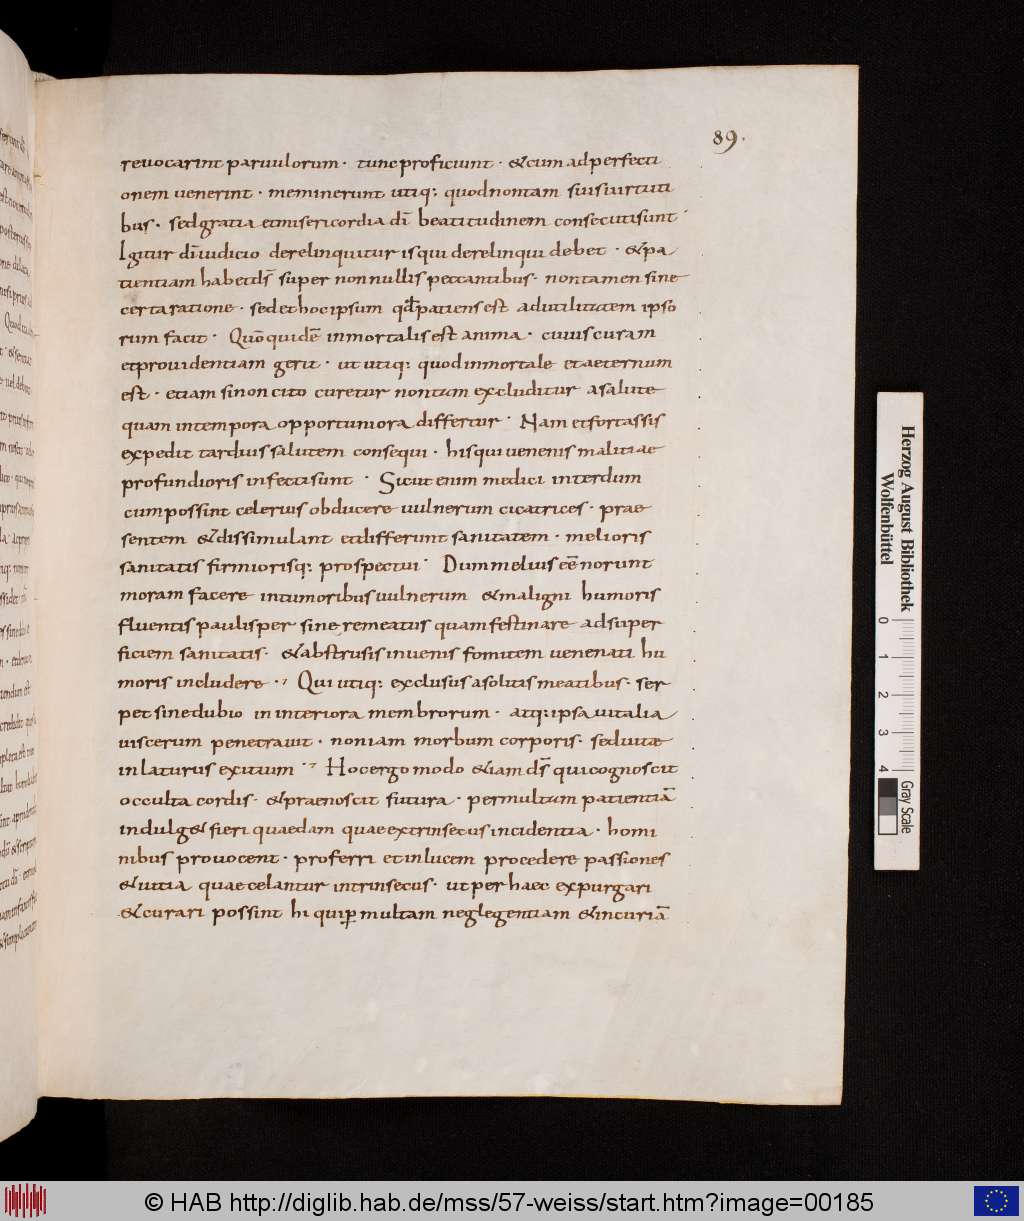 89.
reuocarint paruulorum · tunc proficiunt · & cum ad perfecti
onem uenerint · meminerunt utiq: quod non tam suis uirtuti
bus · sed gratia et misericordia dī beatitudinem consecuti sunt ·
Igitur dī iudicio derelinquitur is qui derelinqui debet · & pa
tientiam habet ds̄ super nonnullis peccantibus · non tamen sine
certa ratione · sed et hoc ipsum qđ patiens est ad utilitatem ipso
rum facit · Quō quidē inmortalis est anima · cuius curam
et prouidentiam gerit · ut utiq: quod inmortale et aeternum
est · etiam si non cito curetur non tam excluditur a salute
quam in tempora opportuniora differtur · Nam et fortassis
expedit tardius salutem consequi · his qui uenenis malitiae
profundioris infecti sunt · Sicut enim medici interdum
cum possint celerius obducere uulnerum cicatrices · prae
sentem & dissimulant et differunt sanitatem · melioris
sanitatis firmiorisq: prospectui · Dum melius eē norunt
moram facere in tumoribus uulnerum & maligni humoris
fluentis paulisper sine remeatus quam festinare ad super
ficiem sanitatis · & abstrusis in uenis fomitem uenenati hu
moris includere · Qui utiq: exclusus a solitis meatibus · ser
pet sine dubio in interiora membrorum · atq: ipsa uitalia
uiscerum penetrauit · non iam morbum corporis · sed uitæ
inlaturus exitium · Hoc ergo modo & iam ds̄ qui cognoscit
occulta cordis · & praenoscit futura · per multam patientiā
indulg& fieri quaedam quae extrinsecus incidentia · homi
nibus prouocent · proferri et in lucem procedere passiones
& uitia quae celantur intrinsecus · ut per haec expurgari
& curari possint hi qui ꝑ multam neglegentiam & incuriā
Herzog August Bibliothek
Wolfenbüttel
0 1 2 3 4
Gray Scale
© HAB http://diglib.hab.de/mss/57-weiss/start.htm?image=00185